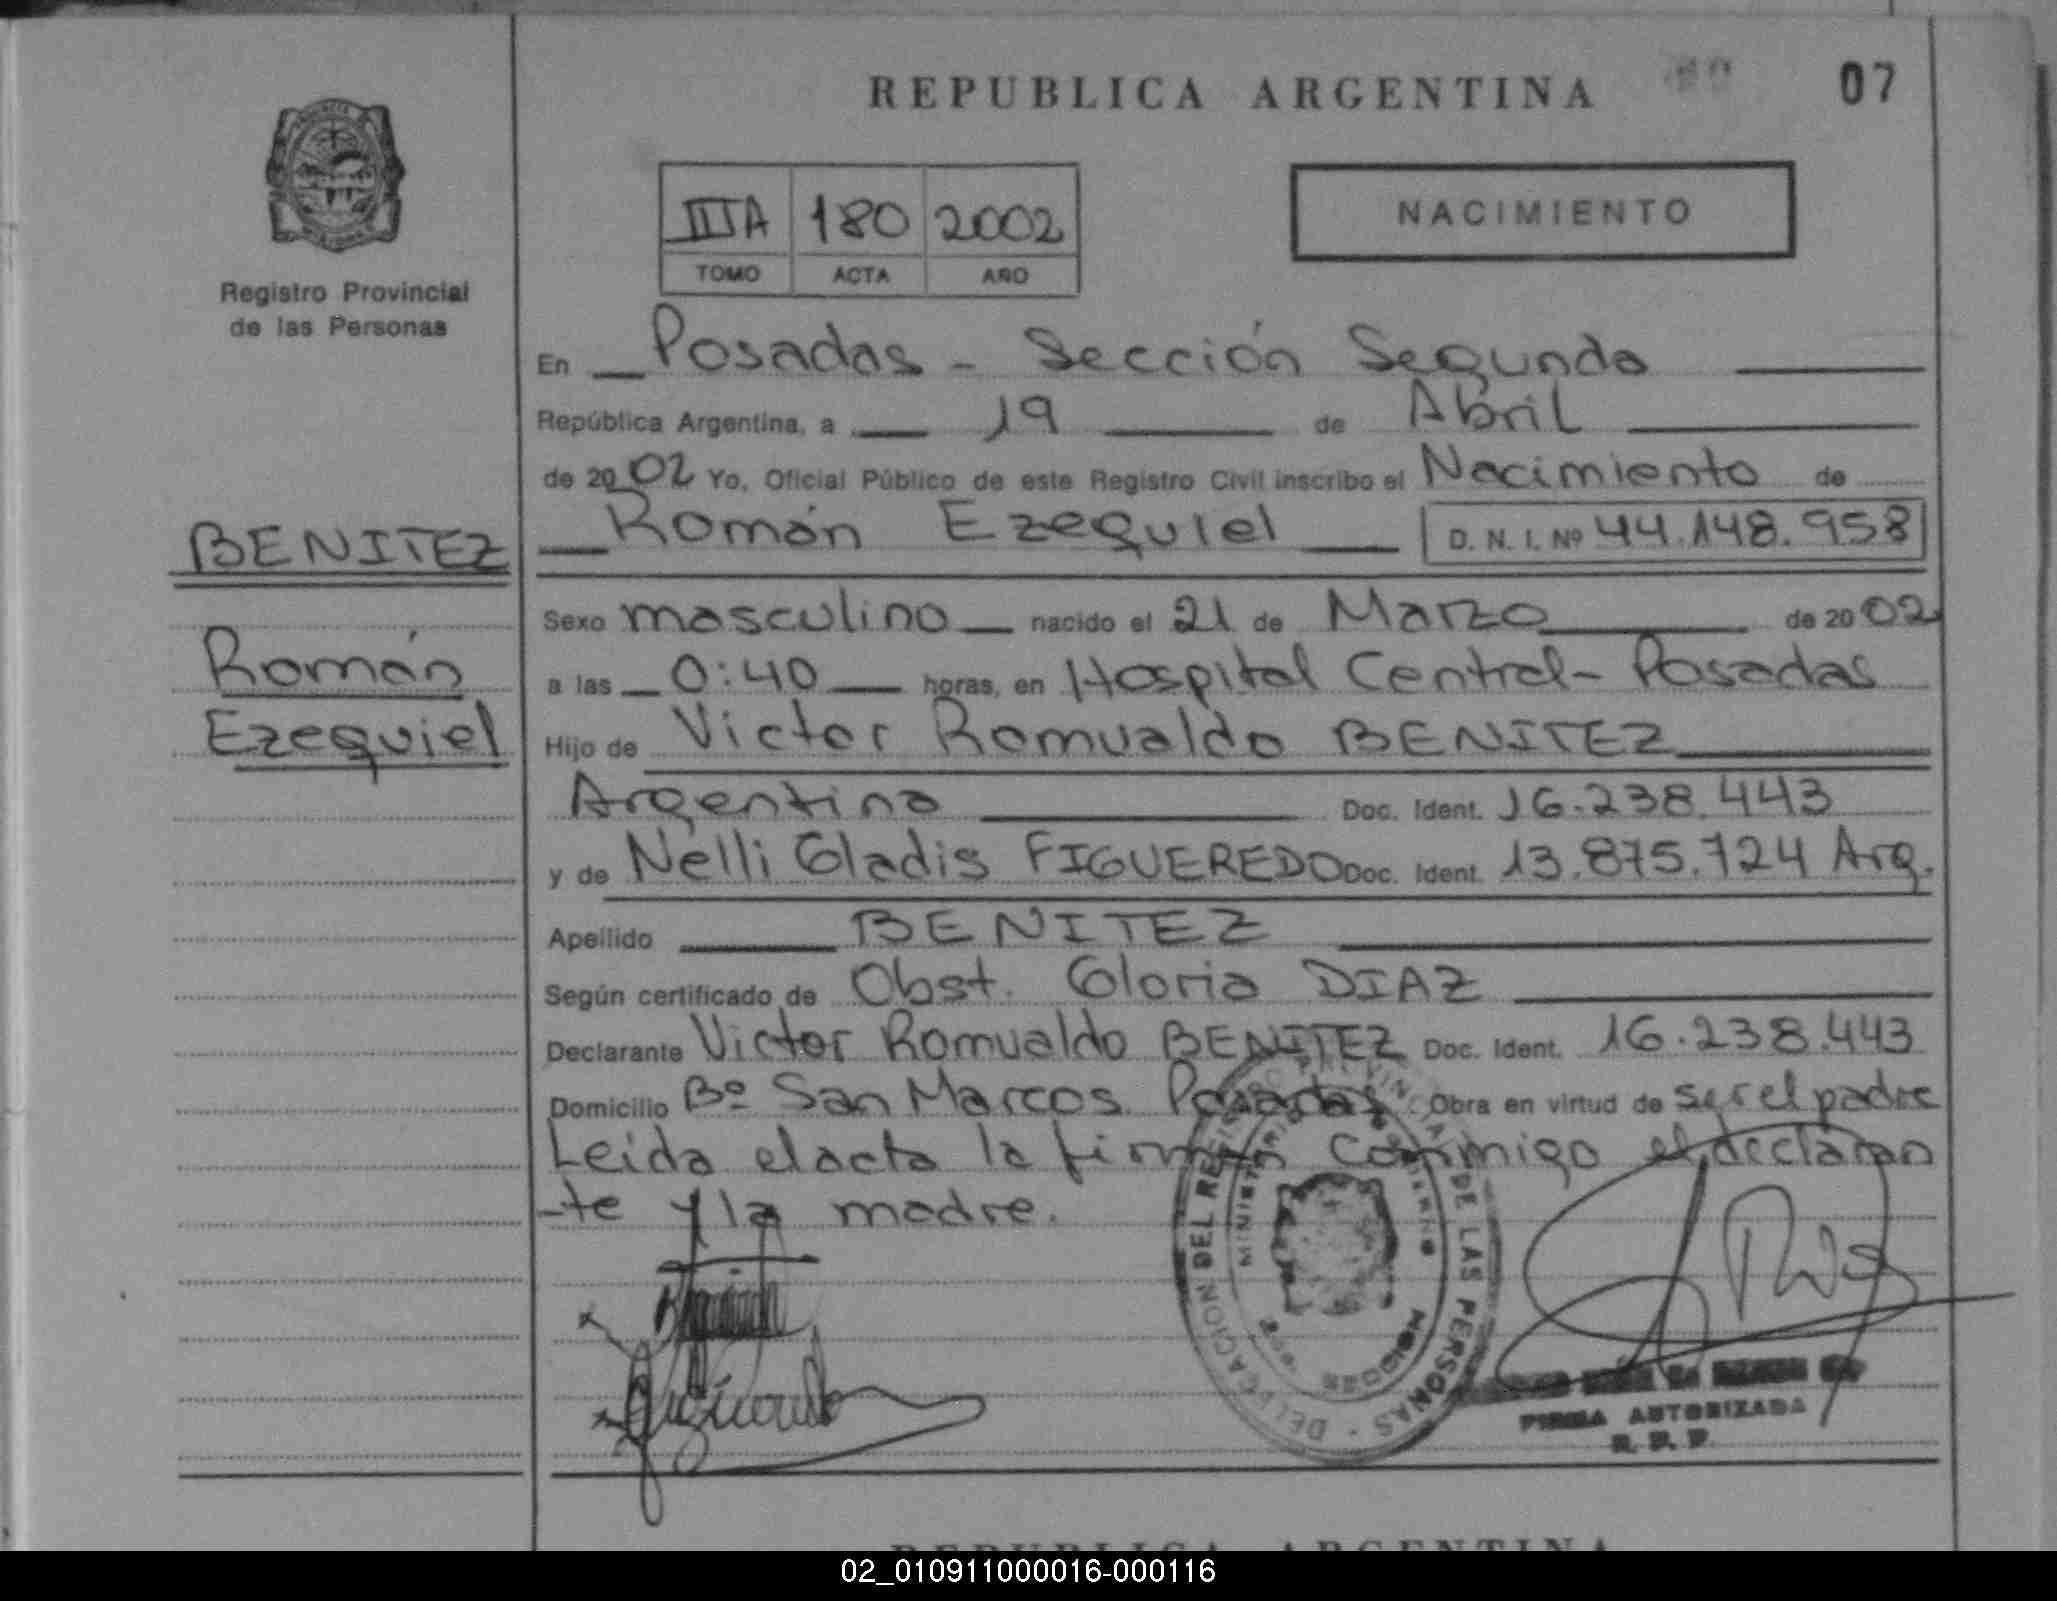 REPUBLICA ARGENTINA
07
IIIA 180 2002
TOMO ACTA AÑO
NACIMIENTO
Registro Provincial
de las Personas
En Posadas - Sección Segunda
República Argentina, a 19 de Abril
de 2002 Yo, Oficial Público de este Registro Civil inscribo el Nacimiento de
Román Ezequiel D. N. I. Nº 44.148.958
BENITEZ
Román
Ezequiel
Sexo masculino nacido el 21 de Marzo de 2002
a las 0:40 horas, en Hospital Central - Posadas
Hijo de Victor Romualdo BENITEZ
Argentina Doc. Ident. 16.238.443
y de Nelli Gladis FIGUEREDO Doc. Ident. 13.875.724 Arg.
Apellido BENITEZ
Según certificado de Obst. Gloria DIAZ
Declarante Victor Romualdo BENITEZ Doc. Ident. 16.238.443
Domicilio Bº San Marcos Posadas Obra en virtud de ser el padre
Leida el acta la firman conmigo el declaran
-te y la madre.
DELEGACION DEL REGISTRO PROVINCIAL DE LAS PERSONAS
MINISTERIO
MISIONES
FIRMA AUTORIZADA
R. P. P.
REPUBLICA ARGENTINA
02_010911000016-000116